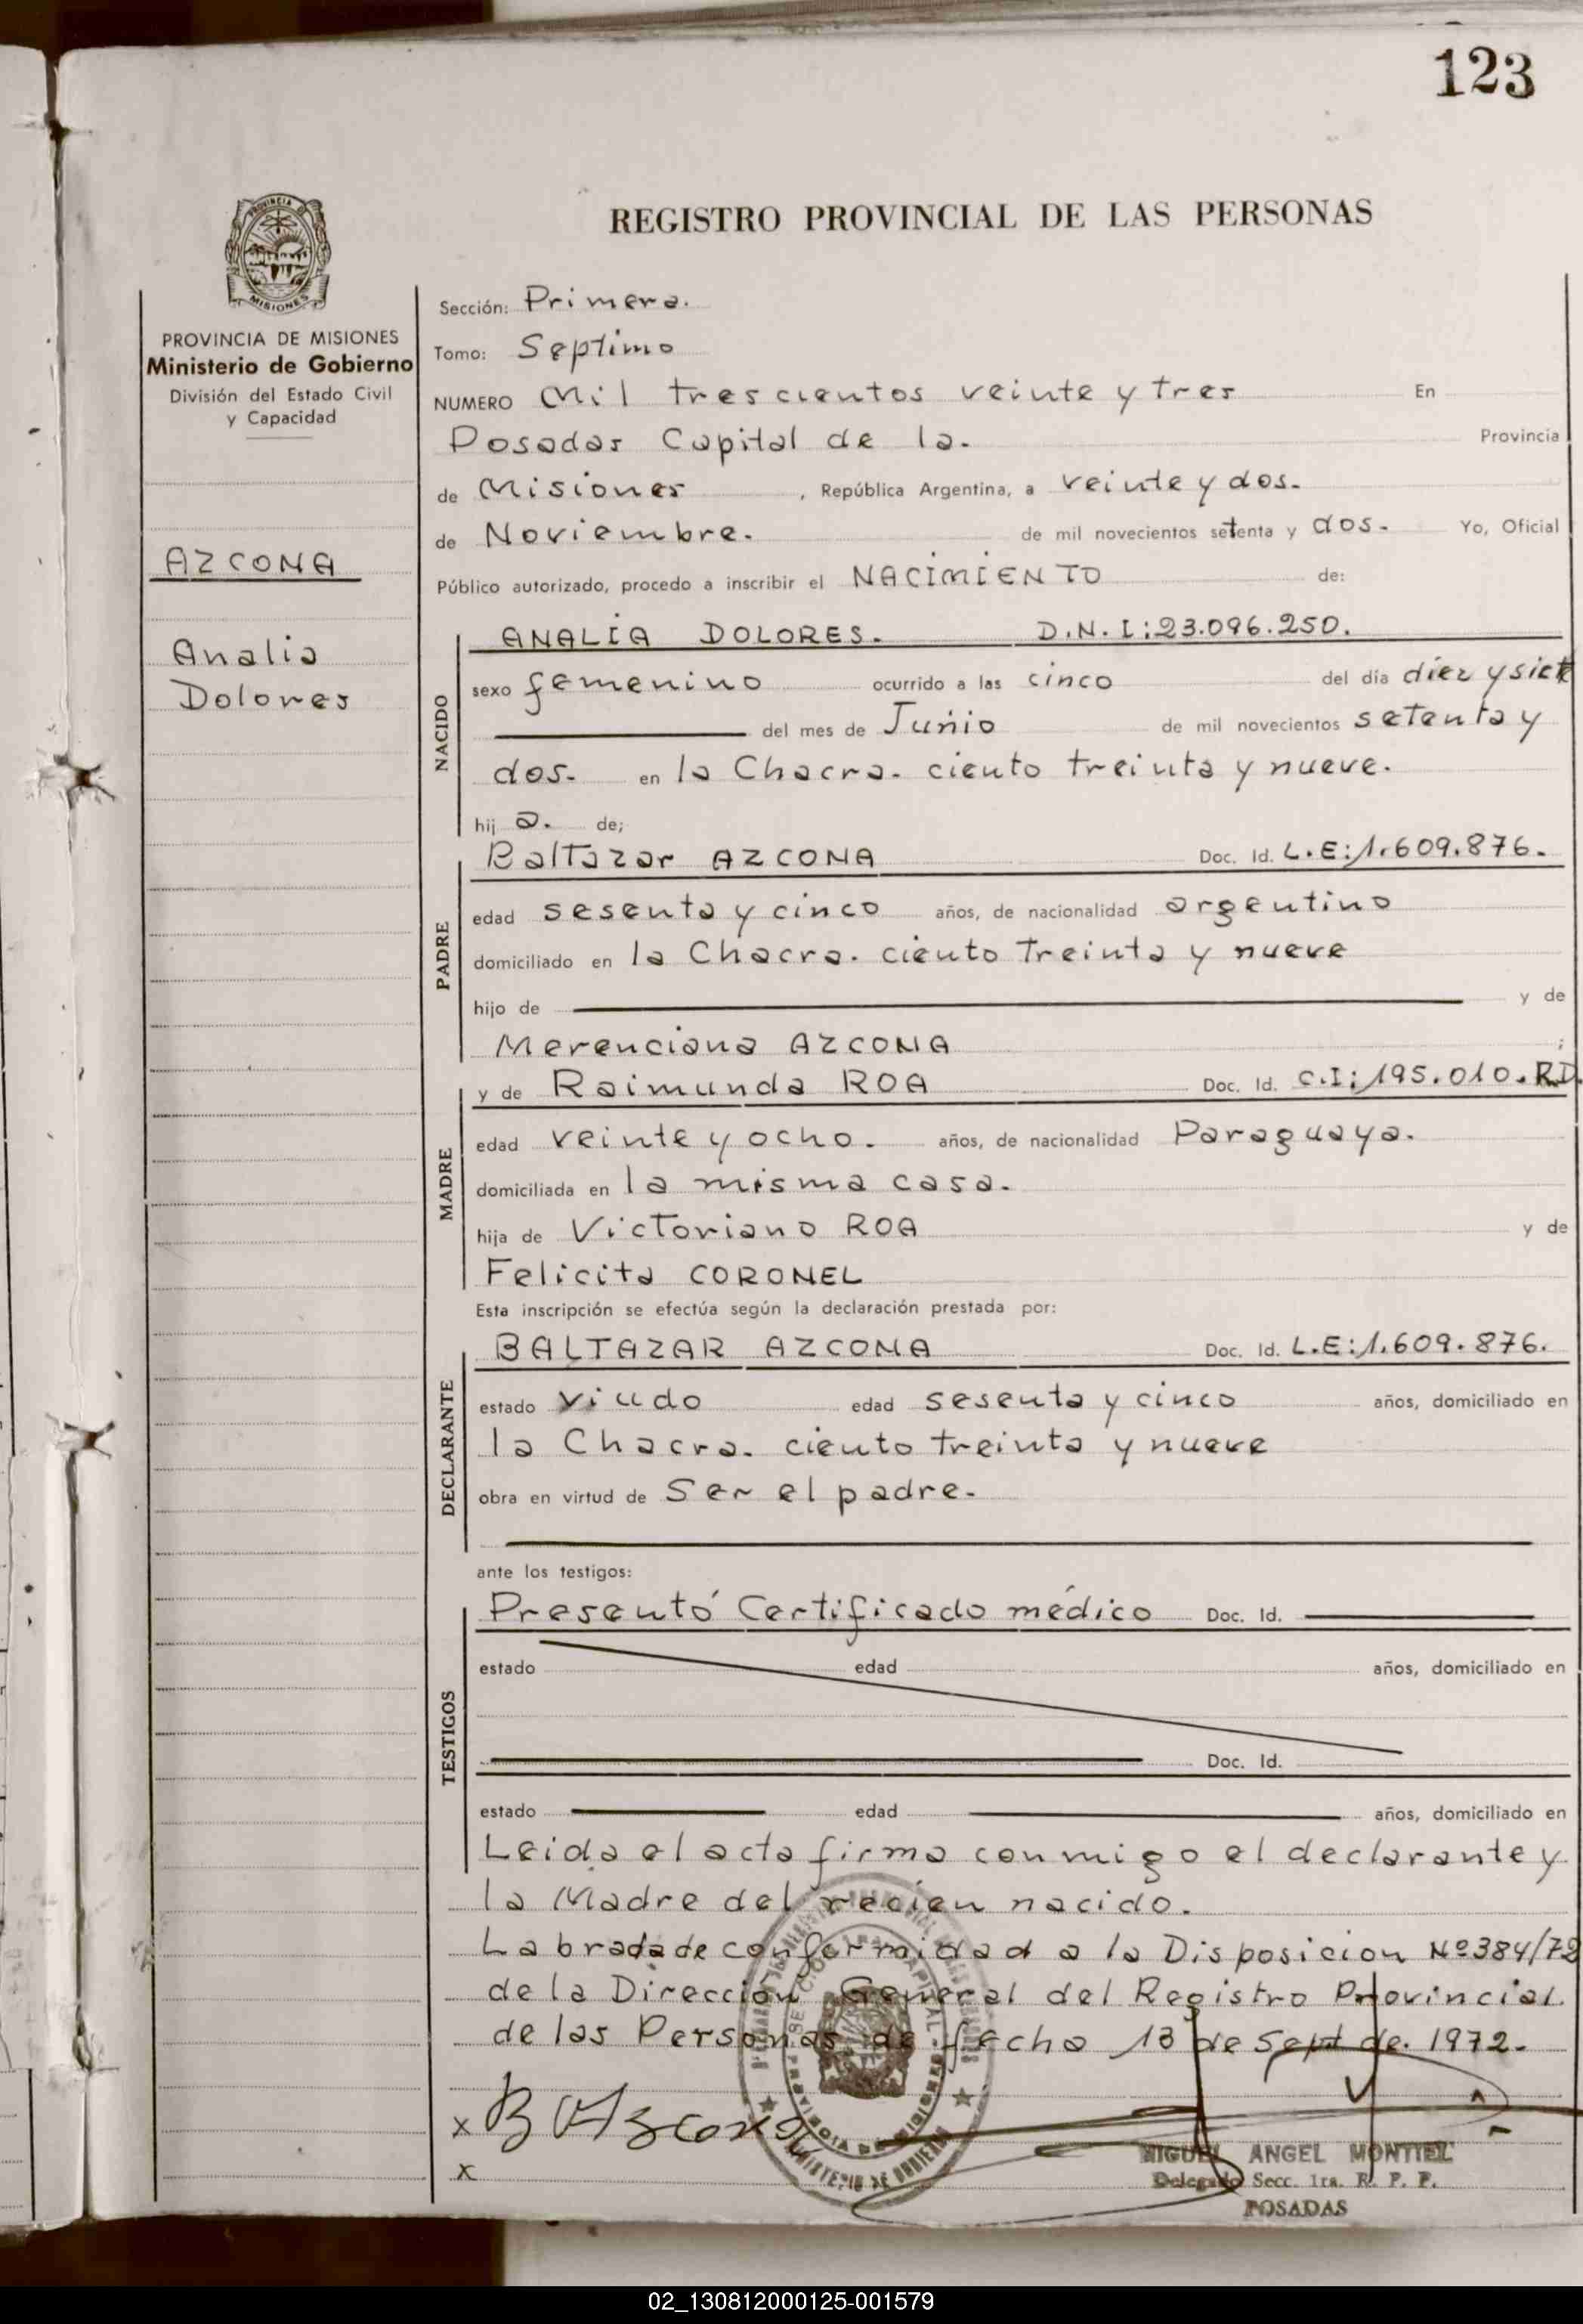 123
REGISTRO PROVINCIAL DE LAS PERSONAS
MISIONES
PROVINCIA DE MISIONES
Ministerio de Gobierno
División del Estado Civil
y Capacidad
AZCONA
Analia
Dolores
Sección: Primera.
Tomo: Septimo
NUMERO Mil trescientos veinte y tres En
Posadas Capital de la. Provincia
de Misiones , República Argentina, a veinte y dos.
de Noviembre. de mil novecientos setenta y dos. Yo, Oficial
Público autorizado, procedo a inscribir el NACIMIENTO de:
NACIDO
ANALIA DOLORES. D.N.I:23.096.250.
sexo femenino ocurrido a las cinco del día diez y siete
del mes de Junio de mil novecientos setenta y
dos. en la Chacra. ciento treinta y nueve.
hij a. de;
PADRE
Baltazar AZCONA Doc. Id. L.E:1.609.876.
edad sesenta y cinco años, de nacionalidad argentino
domiciliado en la Chacra. ciento treinta y nueve
hijo de y de
Merenciana AZCONA ;
MADRE
y de Raimunda ROA Doc. Id. C.I:195.010.RD.
edad veinte y ocho. años, de nacionalidad Paraguaya.
domiciliada en la misma casa.
hija de Victoriano ROA y de
Felicita CORONEL
Esta inscripción se efectúa según la declaración prestada por:
DECLARANTE
BALTAZAR AZCONA Doc. Id. L.E:1.609.876.
estado viudo edad sesenta y cinco años, domiciliado en
la Chacra. ciento treinta y nueve
obra en virtud de Ser el padre.
ante los testigos:
TESTIGOS
Presentó Certificado médico Doc. Id.
estado edad años, domiciliado en
Doc. Id.
estado edad años, domiciliado en
Leida el acta firma conmigo el declarante y
la Madre del recien nacido.
Labrada de conformidad a la Disposicion Nº384/72
de la Direccion General del Registro Provincial.
de las Personas de fecha 13 de Sept de. 1972.
x B Azcona
x
MIGUEL ANGEL MONTIEL
Delegado Secc. 1ra. R. P. P.
POSADAS
02_130812000125-001579